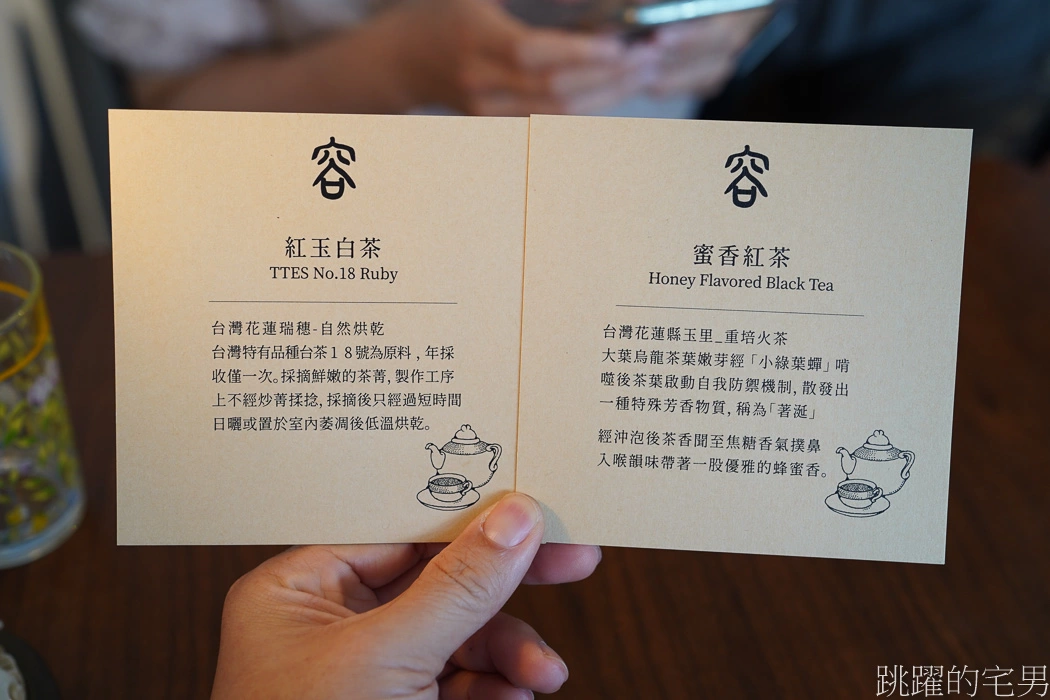 容
紅玉白茶
TTES No.18 Ruby
台灣花蓮瑞穗-自然烘乾
台灣特有品種台茶18號為原料，年採
收僅一次。採摘鮮嫩的茶菁，製作工序
上不經炒菁揉捻，採摘後只經過短時間
日曬或置於室內萎凋後低溫烘乾。
容
蜜香紅茶
Honey Flavored Black Tea
台灣花蓮縣玉里_重培火茶
大葉烏龍茶葉嫩芽經「小綠葉蟬」啃
噬後茶葉啟動自我防禦機制，散發出
一種特殊芳香物質，稱為「著涎」
經沖泡後茶香聞至焦糖香氣撲鼻
入喉韻味帶著一股優雅的蜂蜜香。
跳躍的宅男